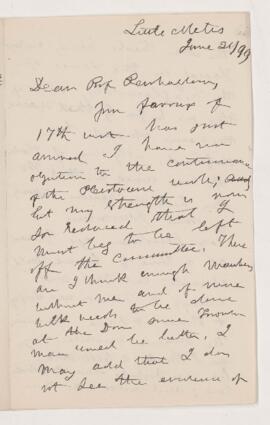 Little Metis
June 21/99
Dear Prof Penhallow,
Your favour of
17th inst. has just
arrived. I have no
objection to the continuance
of the Pleistocene work;
but my strength is now
so reduced that I
must beg to be left
off the committee. There
are I think enough members
without me and if more
work needs to be done
at the Don
may
may add that I do
not see the evidence of